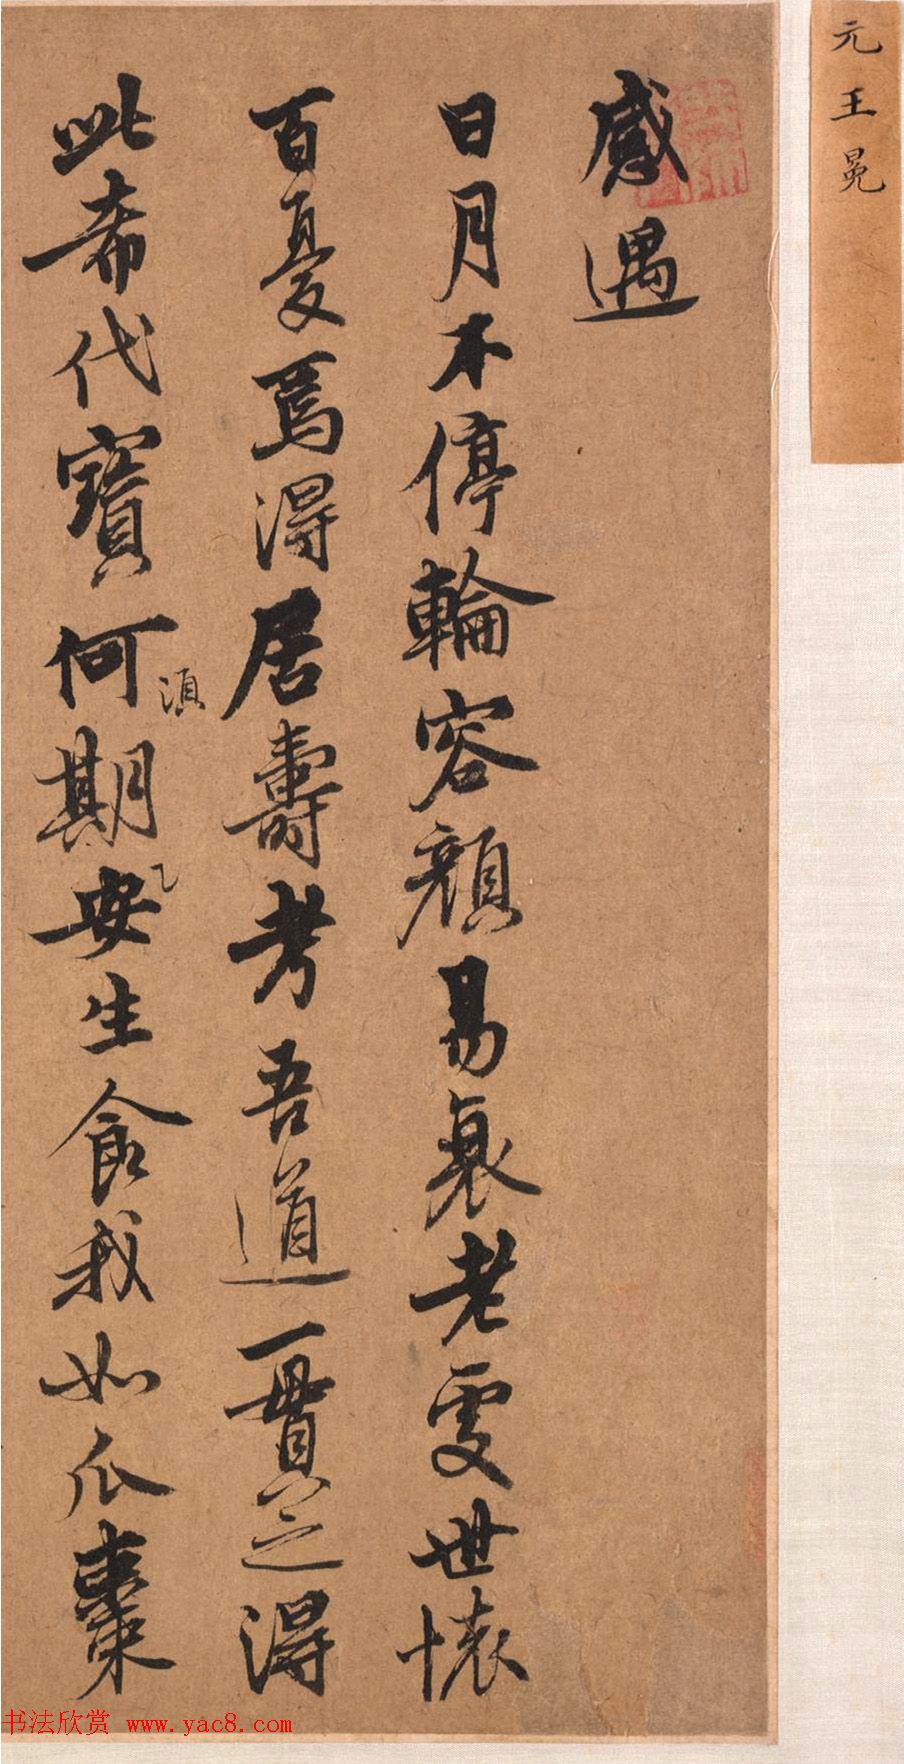 元王冕
感遇
日月不停輪容顏易衰老處世懷
百憂焉得居壽考吾道一貫之得
此希代寶何期安生食我如瓜棗
須
书法欣赏 www.yac8.com